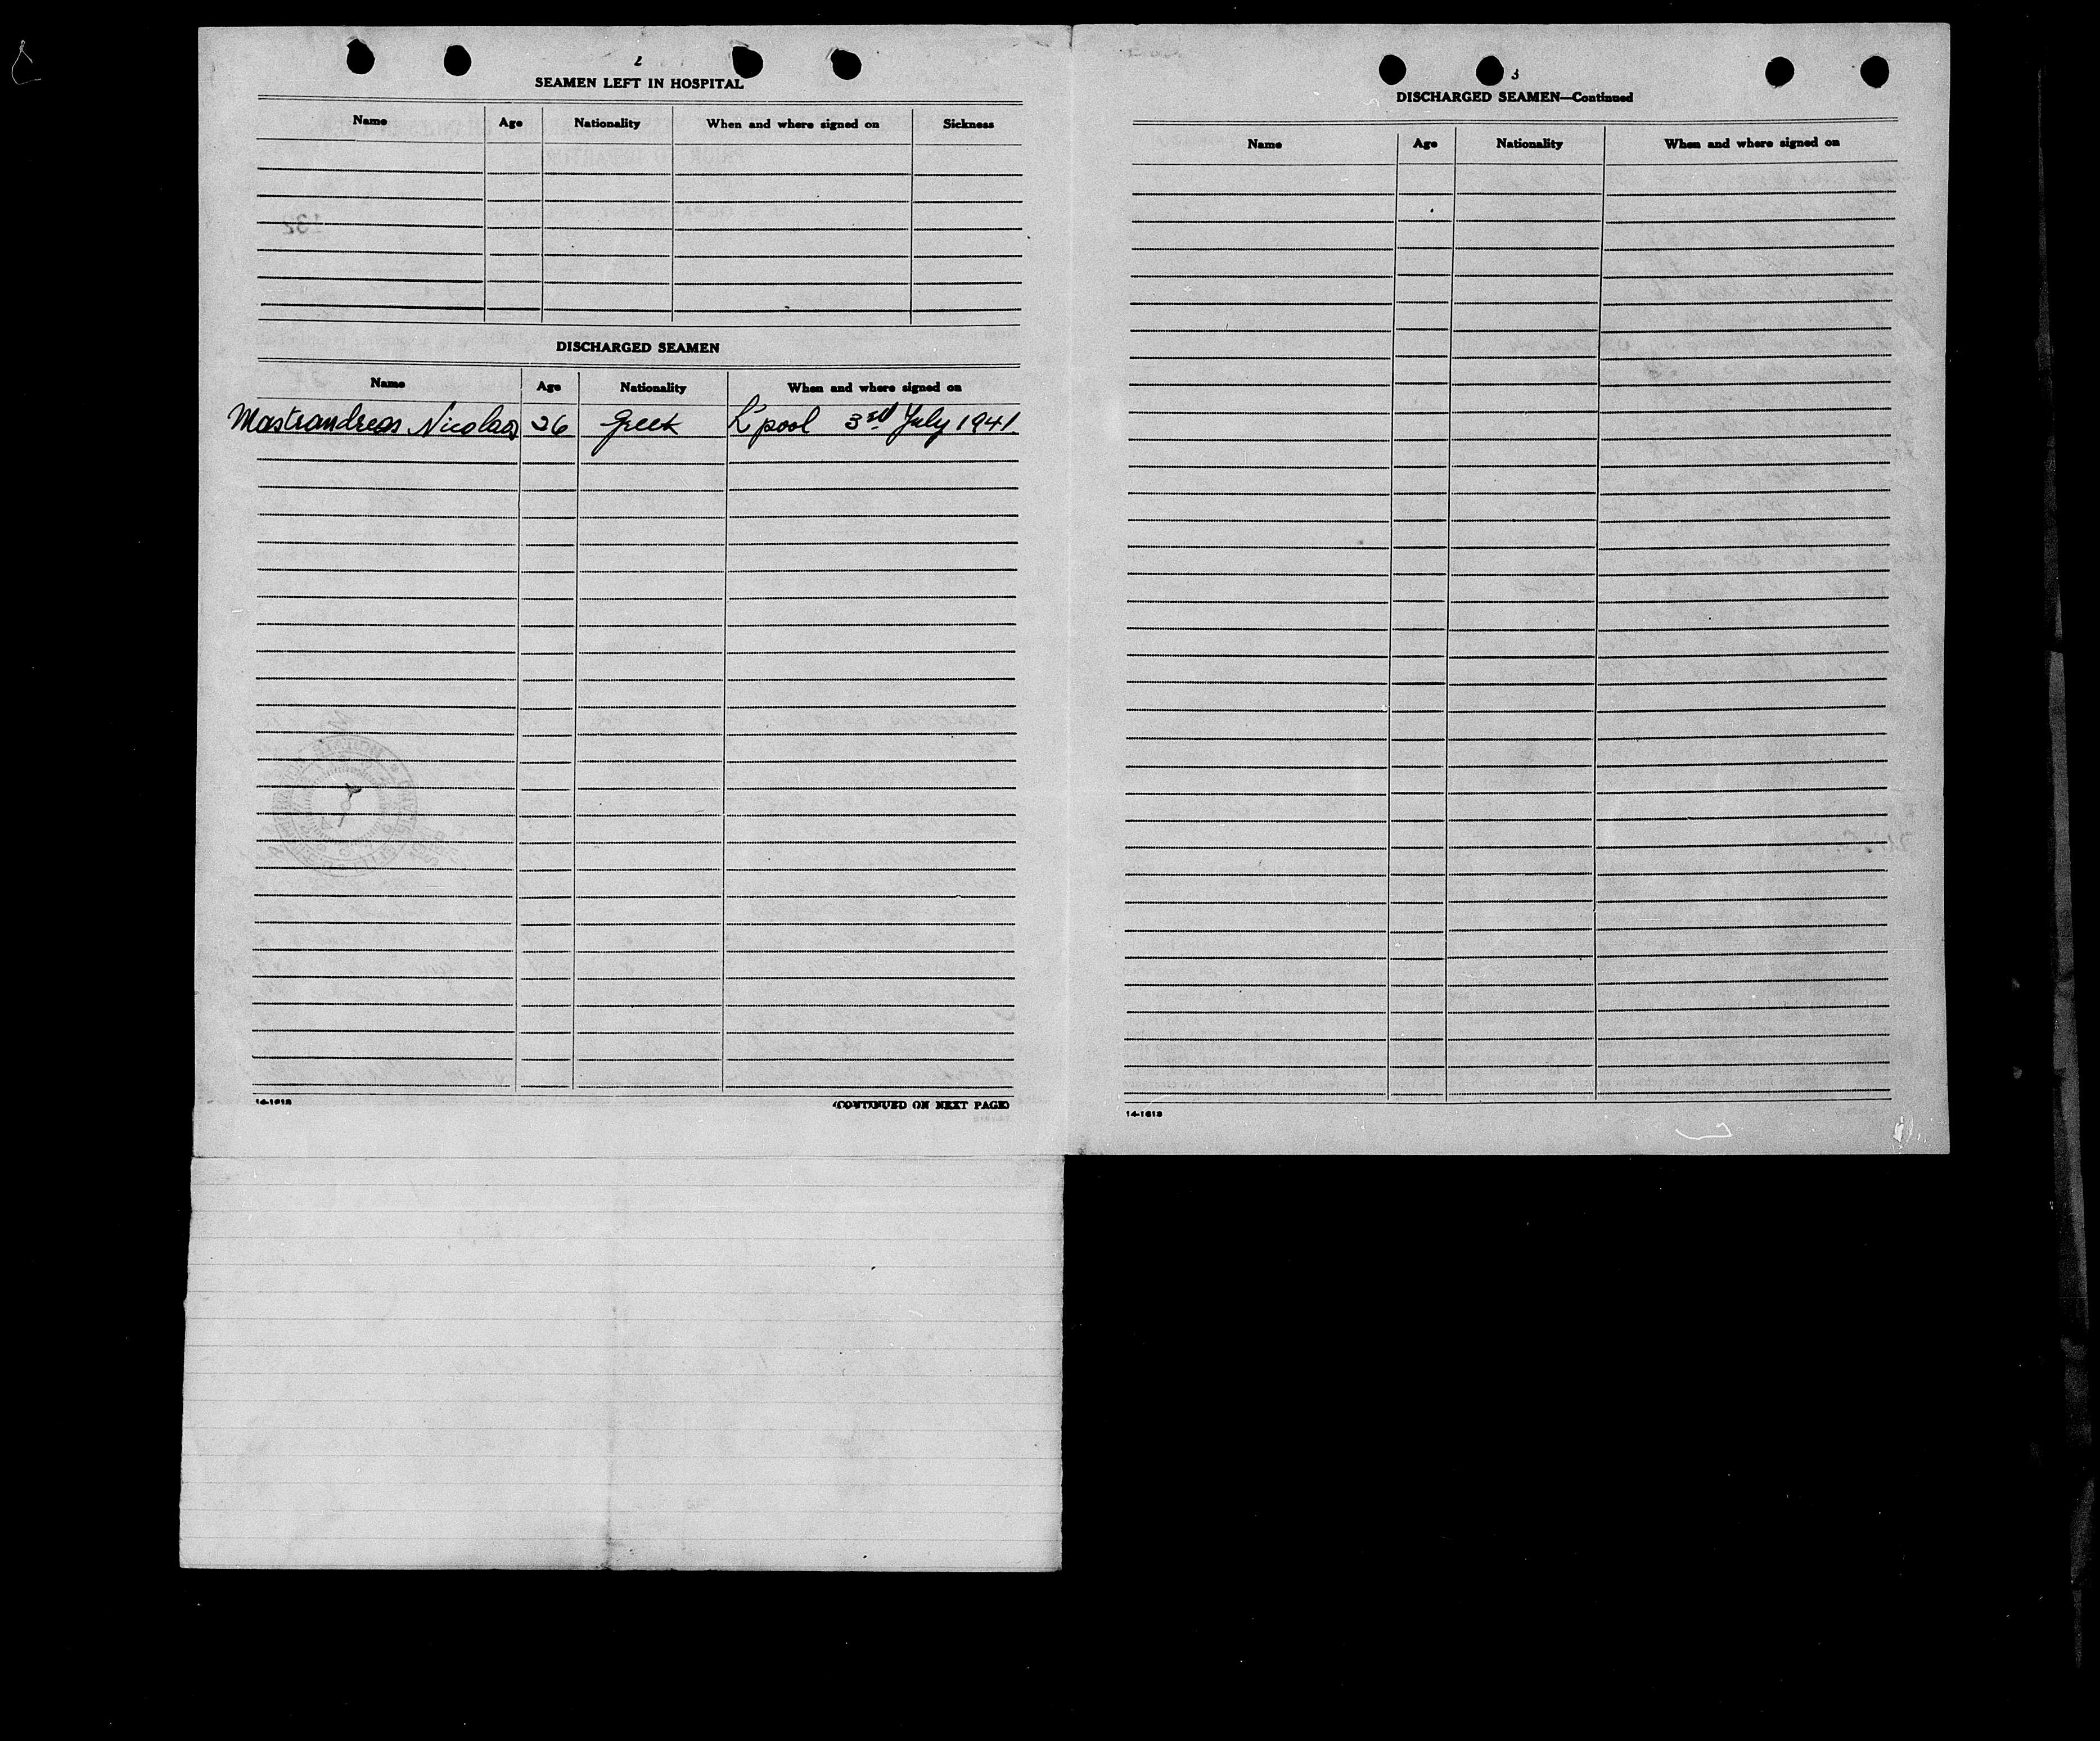 2
SEAMEN LEFT IN HOSPITAL
Name Age Nationality When and where signed on Sickness
DISCHARGED SEAMEN
Name Age Nationality When and where signed on
Mastrandreas Nicolaos 26 Greek L'pool 3rd July 1941.
14-1618
(CONTINUED ON NEXT PAGE)
3
DISCHARGED SEAMEN—Continued
Name Age Nationality When and where signed on
14-1618